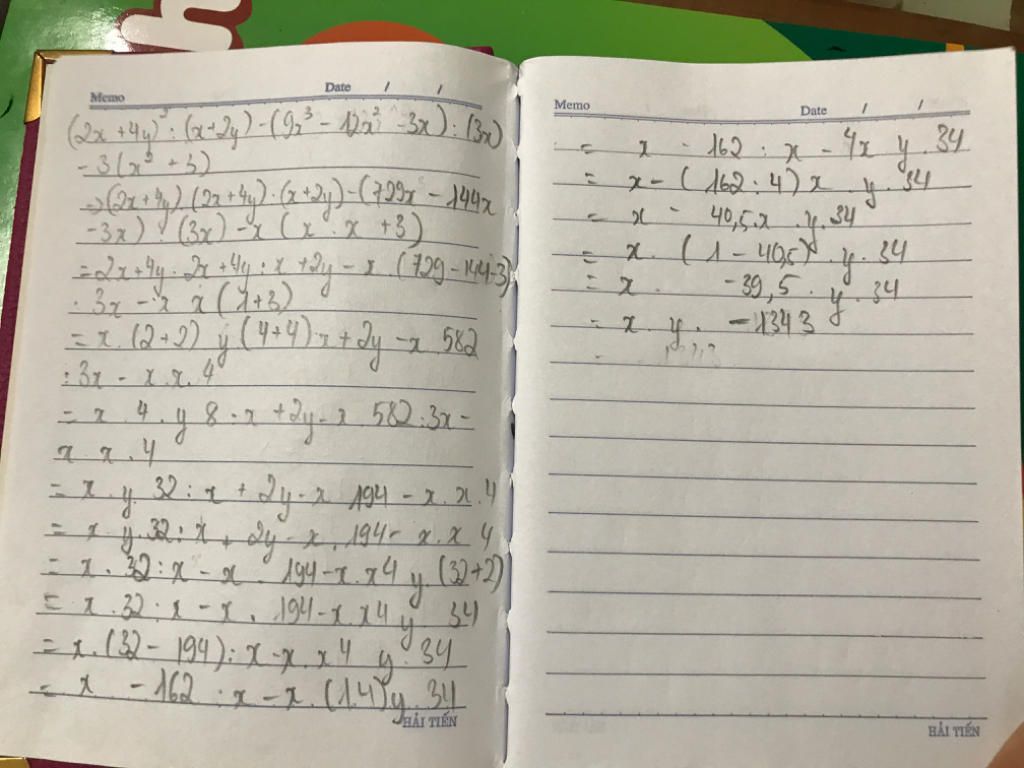 Memo Date / /
(2x + 4y)² : (x + 2y) - (9x³ - 12x² - 3x) : (3x)
- 3(x² + 3)
→ (2x + 4y) (2x + 4y) : (x + 2y) - (729x - 144x
- 3x) : (3x) - x ( x . x + 3)
= 2x + 4y . 2x + 4y : x + 2y - x . (729 - 144 - 3)
: 3x - x . x (1 + 3)
= x . (2 + 2) y (4 + 4) : x + 2y - x 582
: 3x - x . x . 4
= x . 4 . y 8 : x + 2y - x 582 : 3x -
x x . 4
= x . y . 32 : x + 2y - x 194 - x . x . 4
= x y . 32 : x + 2y - x . 194 - x . x 4
= x . 32 : x - x . 194 - x . x4 y . (32 + 2)
= x . 32 : x - x . 194 - x . x4 y 34
= x . (32 - 194) : x - x . x 4 y . 34
= x - 162 : x - x . (1.4) y . 34
HẢI TIẾN
Memo Date / /
= x - 162 : x - 4x y . 34
= x - (162 : 4) x . y . 34
= x - 40,5 . x . y . 34
= x . (1 - 40,5) . y . 34
= x . -39,5 . y . 34
= x . y . -1343
HẢI TIẾN